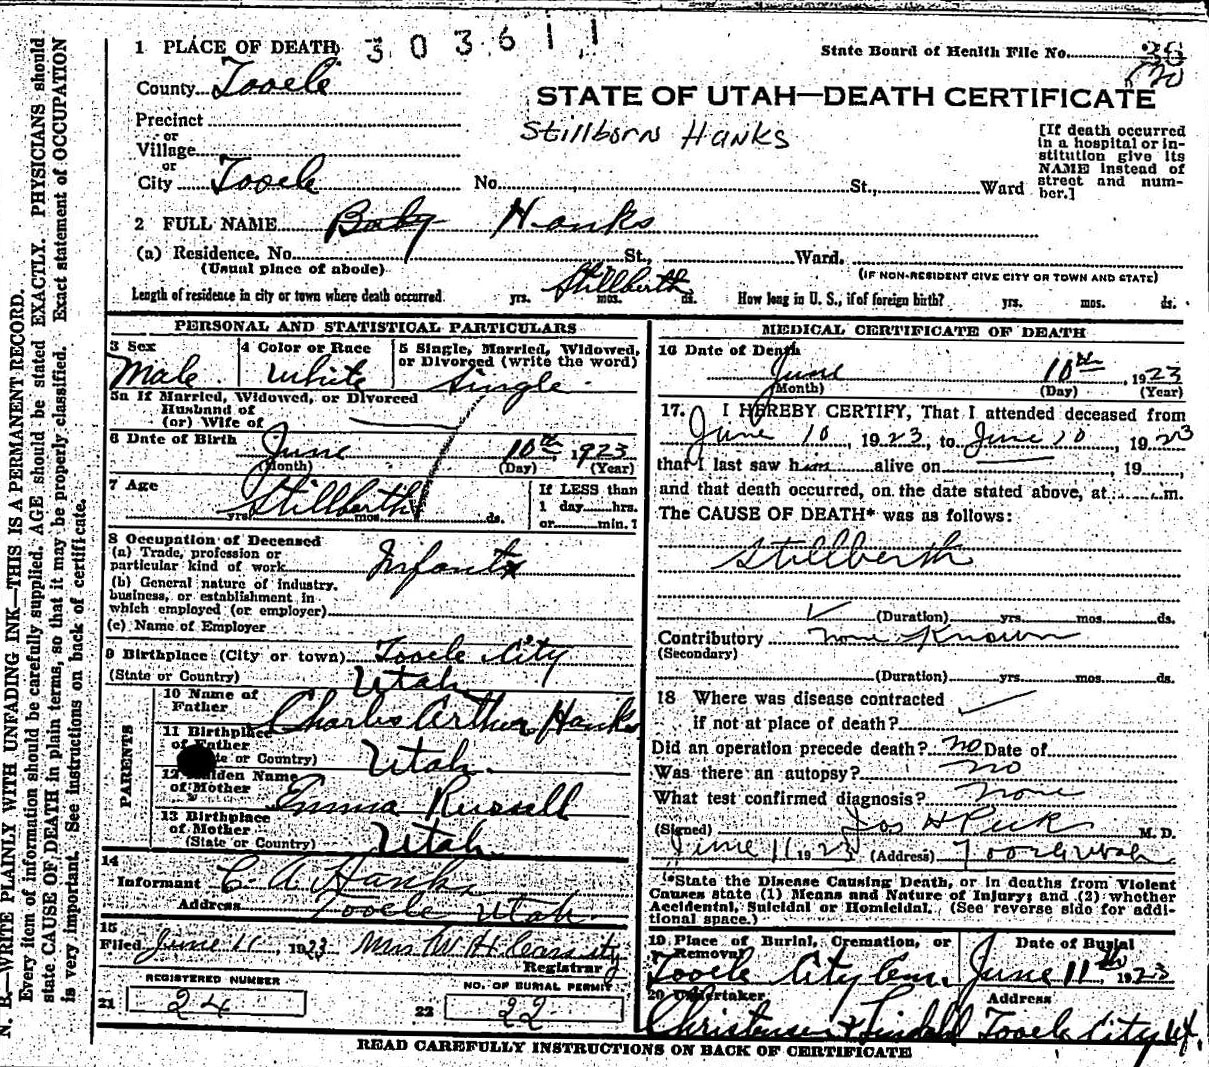 1 PLACE OF DEATH 303611
State Board of Health File No. 36
County Tooele
STATE OF UTAH—DEATH CERTIFICATE
Stillborn Hanks
Precinct
or
Village
or
City Tooele No. St., Ward
[If death occurred
in a hospital or in-
stitution give its
NAME instead of
street and num-
ber.]
2 FULL NAME Baby Hanks
(a) Residence. No. St., Ward.
(Usual place of abode) (IF NON-RESIDENT GIVE CITY OR TOWN AND STATE)
Stillberth
Length of residence in city or town where death occurred. yrs. mos. ds. How long in U. S., if of foreign birth? yrs. mos. ds.
PERSONAL AND STATISTICAL PARTICULARS
3 Sex
Male
4 Color or Race
White
5 Single, Married, Widowed,
or Divorced (write the word)
Single
5a If Married, Widowed, or Divorced
Husband of
(or) Wife of
6 Date of Birth
June 10th 1923
(Month) (Day) (Year)
7 Age
Stillberth
yrs. mos. ds.
If LESS than
1 day hrs.
or min.?
8 Occupation of Deceased
(a) Trade, profession or
particular kind of work Infant
(b) General nature of industry,
business, or establishment in
which employed (or employer)
(c) Name of Employer
9 Birthplace (City or town) Tooele City
(State or Country) Utah
PARENTS
10 Name of
Father Charles Arthur Hanks
11 Birthplace
of Father
(State or Country) Utah.
12 Maiden Name
of Mother Emma Russell
13 Birthplace
of Mother
(State or Country) Utah.
14
Informant C A Hanks
Address Tooele Utah.
15
Filed June 11 1923 Mrs W H Cassity
Registrar
REGISTERED NUMBER
21 24
NO. OF BURIAL PERMIT
22 22
MEDICAL CERTIFICATE OF DEATH
16 Date of Death
June 10th, 1923
(Month) (Day) (Year)
17. I HEREBY CERTIFY, That I attended deceased from
June 10, 1923, to June 10, 1923
that I last saw him alive on , 19 ,
and that death occurred, on the date stated above, at m.
The CAUSE OF DEATH* was as follows:
Stillberth
(Duration) yrs. mos. ds.
Contributory None Known
(Secondary)
(Duration) yrs. mos. ds.
18 Where was disease contracted
if not at place of death?
Did an operation precede death? no Date of
Was there an autopsy? no
What test confirmed diagnosis? none
(Signed) Jos H Peck M. D.
June 11 1923 (Address) Tooele Utah
(*State the Disease Causing Death, or in deaths from Violent
Causes state (1) Means and Nature of Injury; and (2) whether
Accidental, Suicidal or Homicidal. (See reverse side for addi-
tional space.)
19 Place of Burial, Cremation, or
Removal
Tooele City Cem.
Date of Burial
June 11th, 1923
20 Undertaker
Christensen & Lindahl
Address
Tooele City Ut.
READ CAREFULLY INSTRUCTIONS ON BACK OF CERTIFICATE
N. B.—WRITE PLAINLY WITH UNFADING INK—THIS IS A PERMANENT RECORD.
Every item of information should be carefully supplied. AGE should be stated EXACTLY. PHYSICIANS should
state CAUSE OF DEATH in plain terms, so that it may be properly classified. Exact statement of OCCUPATION
is very important. See instructions on back of certificate.